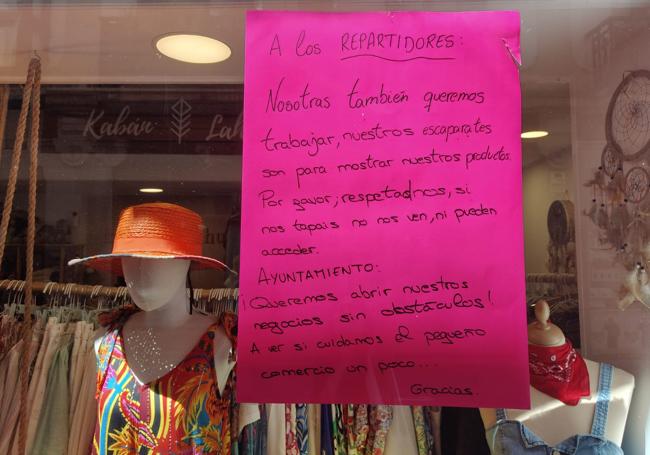 A los REPARTIDORES:
Nosotras también queremos
trabajar, nuestros escaparates
son para mostrar nuestros productos.
Por favor, respetadnos, si
nos tapais no nos ven, ni pueden
acceder.
AYUNTAMIENTO:
¡Queremos abrir nuestros
negocios sin obstáculos!
A ver si cuidamos el pequeño
comercio un poco...
Gracias.
Kabán